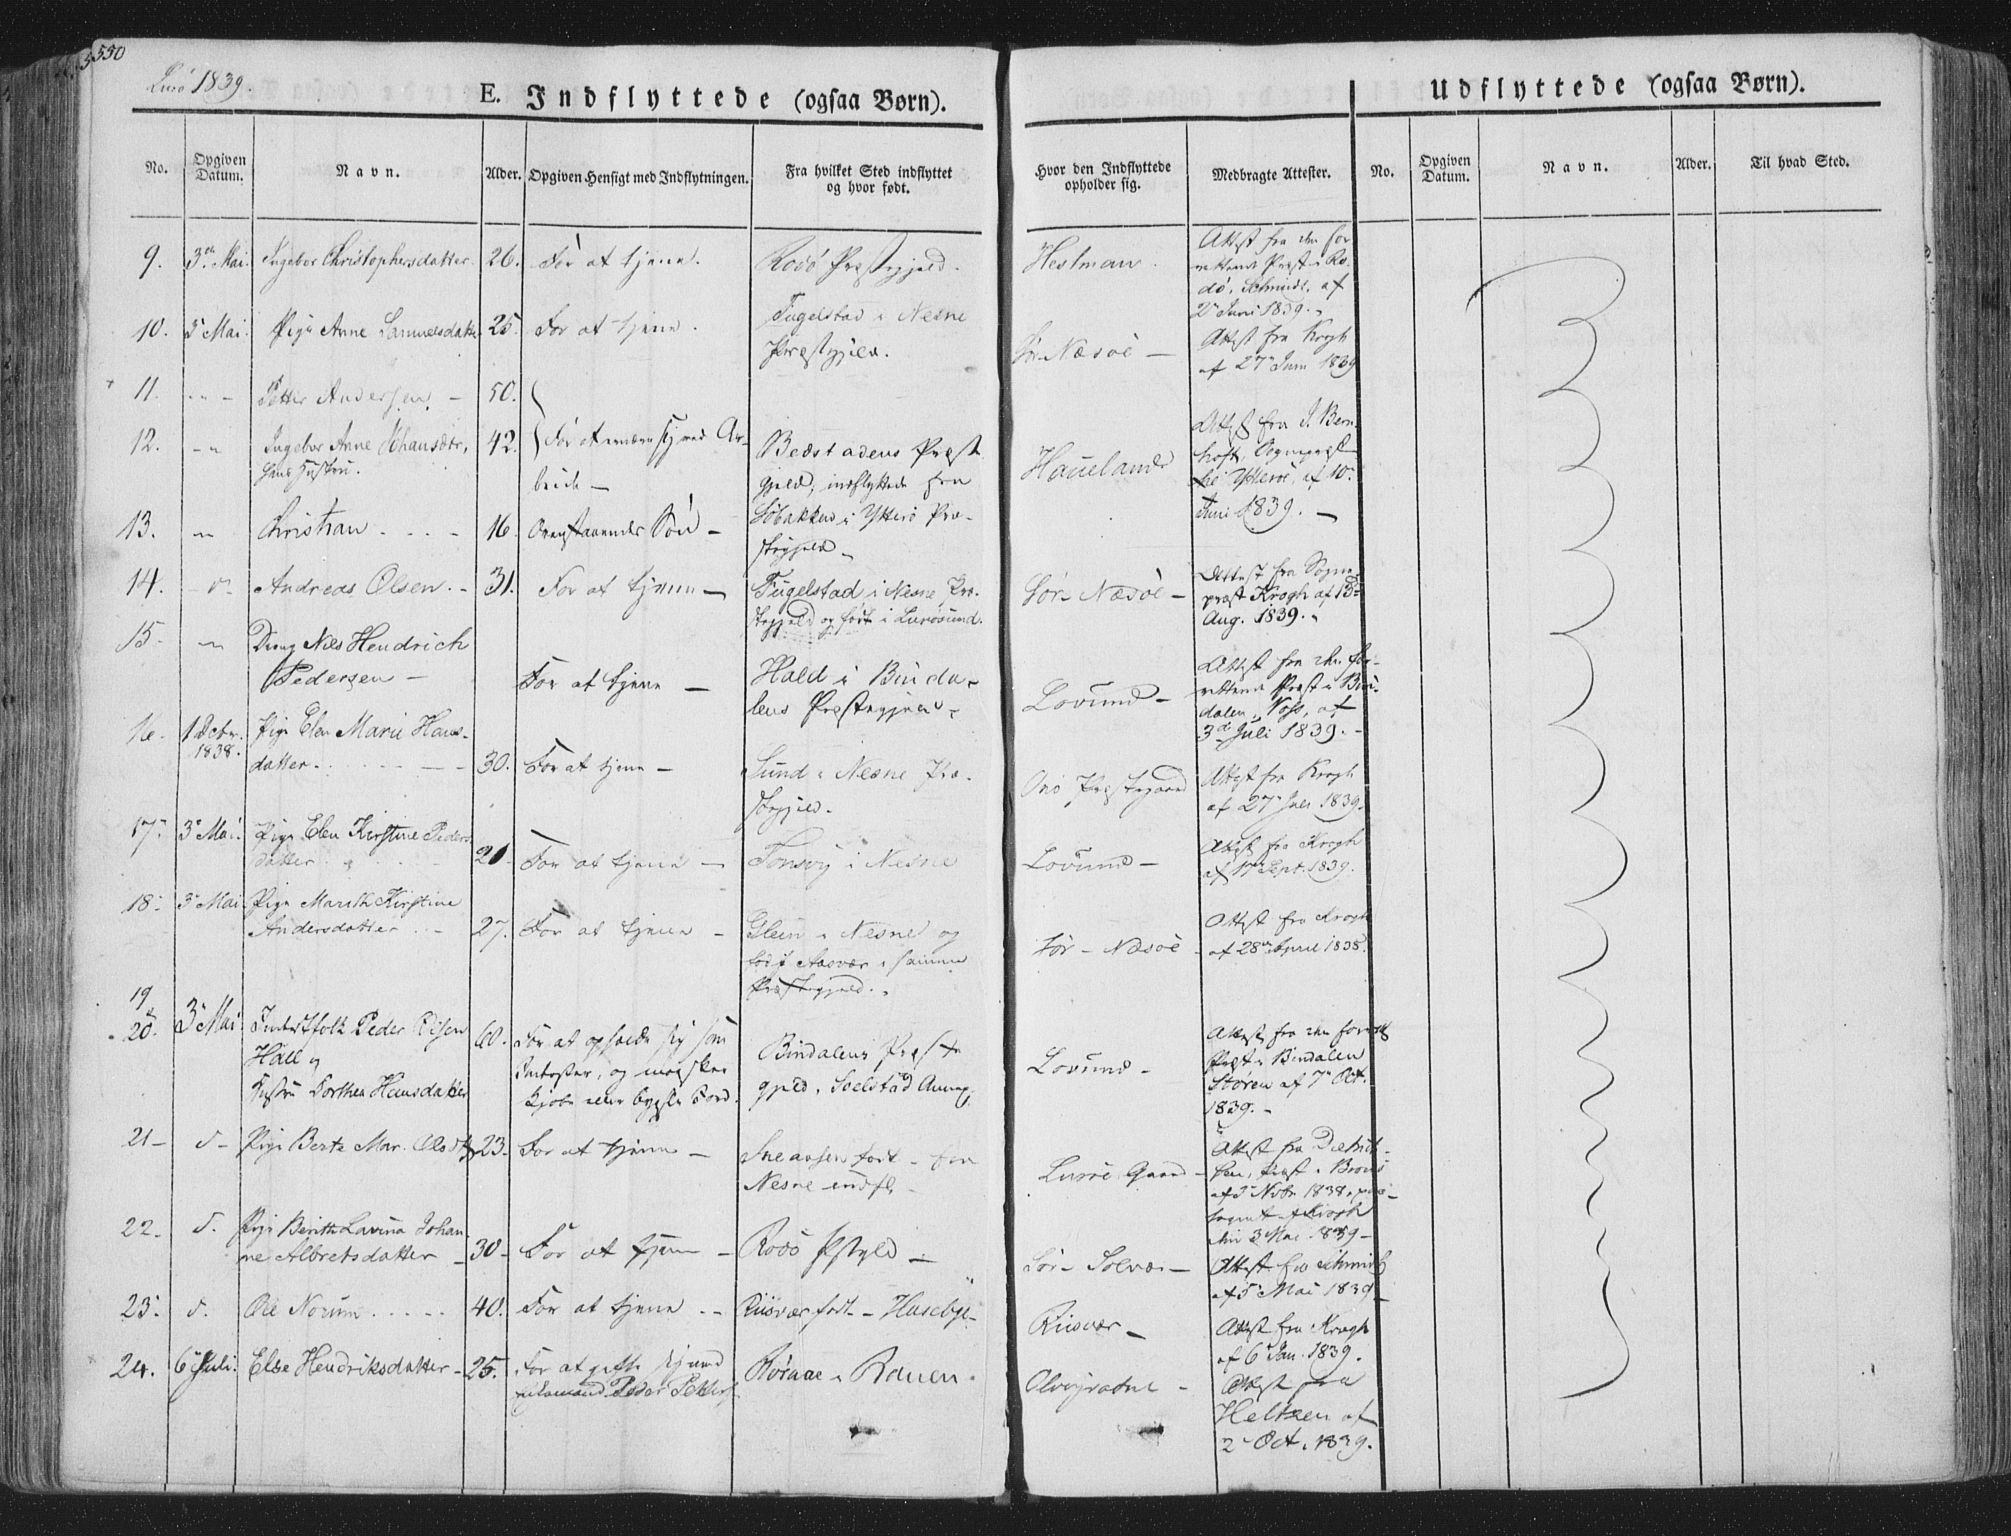 550
Lurö 1839.
E. Indflyttede (ogsaa Børn).
Udflyttede (ogsaa Børn).
No.
Opgiven Datum.
Navn.
Alder.
Opgiven Hensigt med Indflytningen.
Fra hvilket Sted indflyttet og hvor født.
Hvor den Indflyttede opholder sig.
Medbragte Attester.
No.
Opgiven Datum.
Navn.
Alder.
Til hvad Sted.
9. 3die Mai. Ingebor Christophersdatter. 26. For at tjene. Rödö Præstegjeld. Hestman. Attest fra den for
rettende Præst i Rö
dö, Schmidt, af
2den Juni 1839.
10. 3 Mai. Pige Anne Samuelsdatter 25. For at tjene. Fugelstad i Nesne
Præstegjeld. Sör-Næsöe — Attest fra Krogh
af 27de Juni 1839
11. Petter Andersen — 50.
12. Ingebor Anne Johansdtr, 42. For at ernære sig med Ar-
hans Hustru. beide — Bedstadens Præste
gjeld, indflyttede fra Hauelands Attest fra J. Bern
hoft, Sognepræst
til Ytteröe, af 10.
Juni 1839. —
13. Christian 16. Ovenstaaendes Sön — Söbakken i Ytterö Præ-
stegjeld —
14. Andreas Olsen. 31. For at tjene — Fugelstad i Nesne Præ-
stegjeld og födt i Luröesund. Sör-Næsöe — Attest fra Sogne
præst Krogh af 13de
Aug. 1839.
15. Dreng Nils Hendrich
Pedersen — For at tjene — Hald i Binda-
lens Præstegjeld. Lovund — Attest fra den for-
rettende Præst i Bin-
dalen, Voss, af
3die Juli 1839. —
16. 1 Octbr. 1838. Pige Elen Marie Hans-
datter. 30. For at tjene — Sund i Nesne Præ-
stegjeld. Onö Præstegaard Attest fra Krogh
af 27de Juli 1839.
17. 3 Mai. Pige Elen Kirstine Peders
datter 20. For at tjene — Tonsvig i Nesne Lovund — Attest fra Krogh
af 17de Sept. 1839.
18. 3 Mai Pige Marith Kirstine
Andersdatter 27. For at tjene — Glein i Nesne og
födt Aasvær i samme
Præstegjeld. Sör-Næsöe Attest fra Krogh
af 28de April 1838.
19
20. 3 Mai. Inderstfolk Peder Olsen 60. For at opholde sig som
Hall og Inderster, og maaskee
Hustru Dorthea Hansdatter kjöbe eller bygsle Jord. Bindalens Præste
gjeld, Soelstad Annex. Lovund — Attest fra den forrett
Præst i Bindalen
Stören af 7de Oct.
1839. —
21 — Pige Berte Mar. Olsdtr 23 — For at tjene — födt — fra
Nesne indfl. Luröe Gaard — Attest fra
Præst i Brönö
af 3 Novbr 1838, paa-
tegnet af Krogh
den 3 Mai 1839 —
22 — Pige Berith Lavina Johan
ne Albretsdatter — 30 — For at tjene — Rödö Pstgjeld — Sör-Solvær — Attest fra Schmidt
af 5 Mai 1839 —
23. Ole Norum. 40. For at tjene — Riisvær födt — Husebye — Riisvær — Attest fra Krogh
af 6 Jan. 1839.
24. 6 Juli. Else Hendriksdatter — 25. For at gifte sig med
Peder Petters. Röraae i Ranen. Attest fra
Heltzen af
2 Oct. 1839.